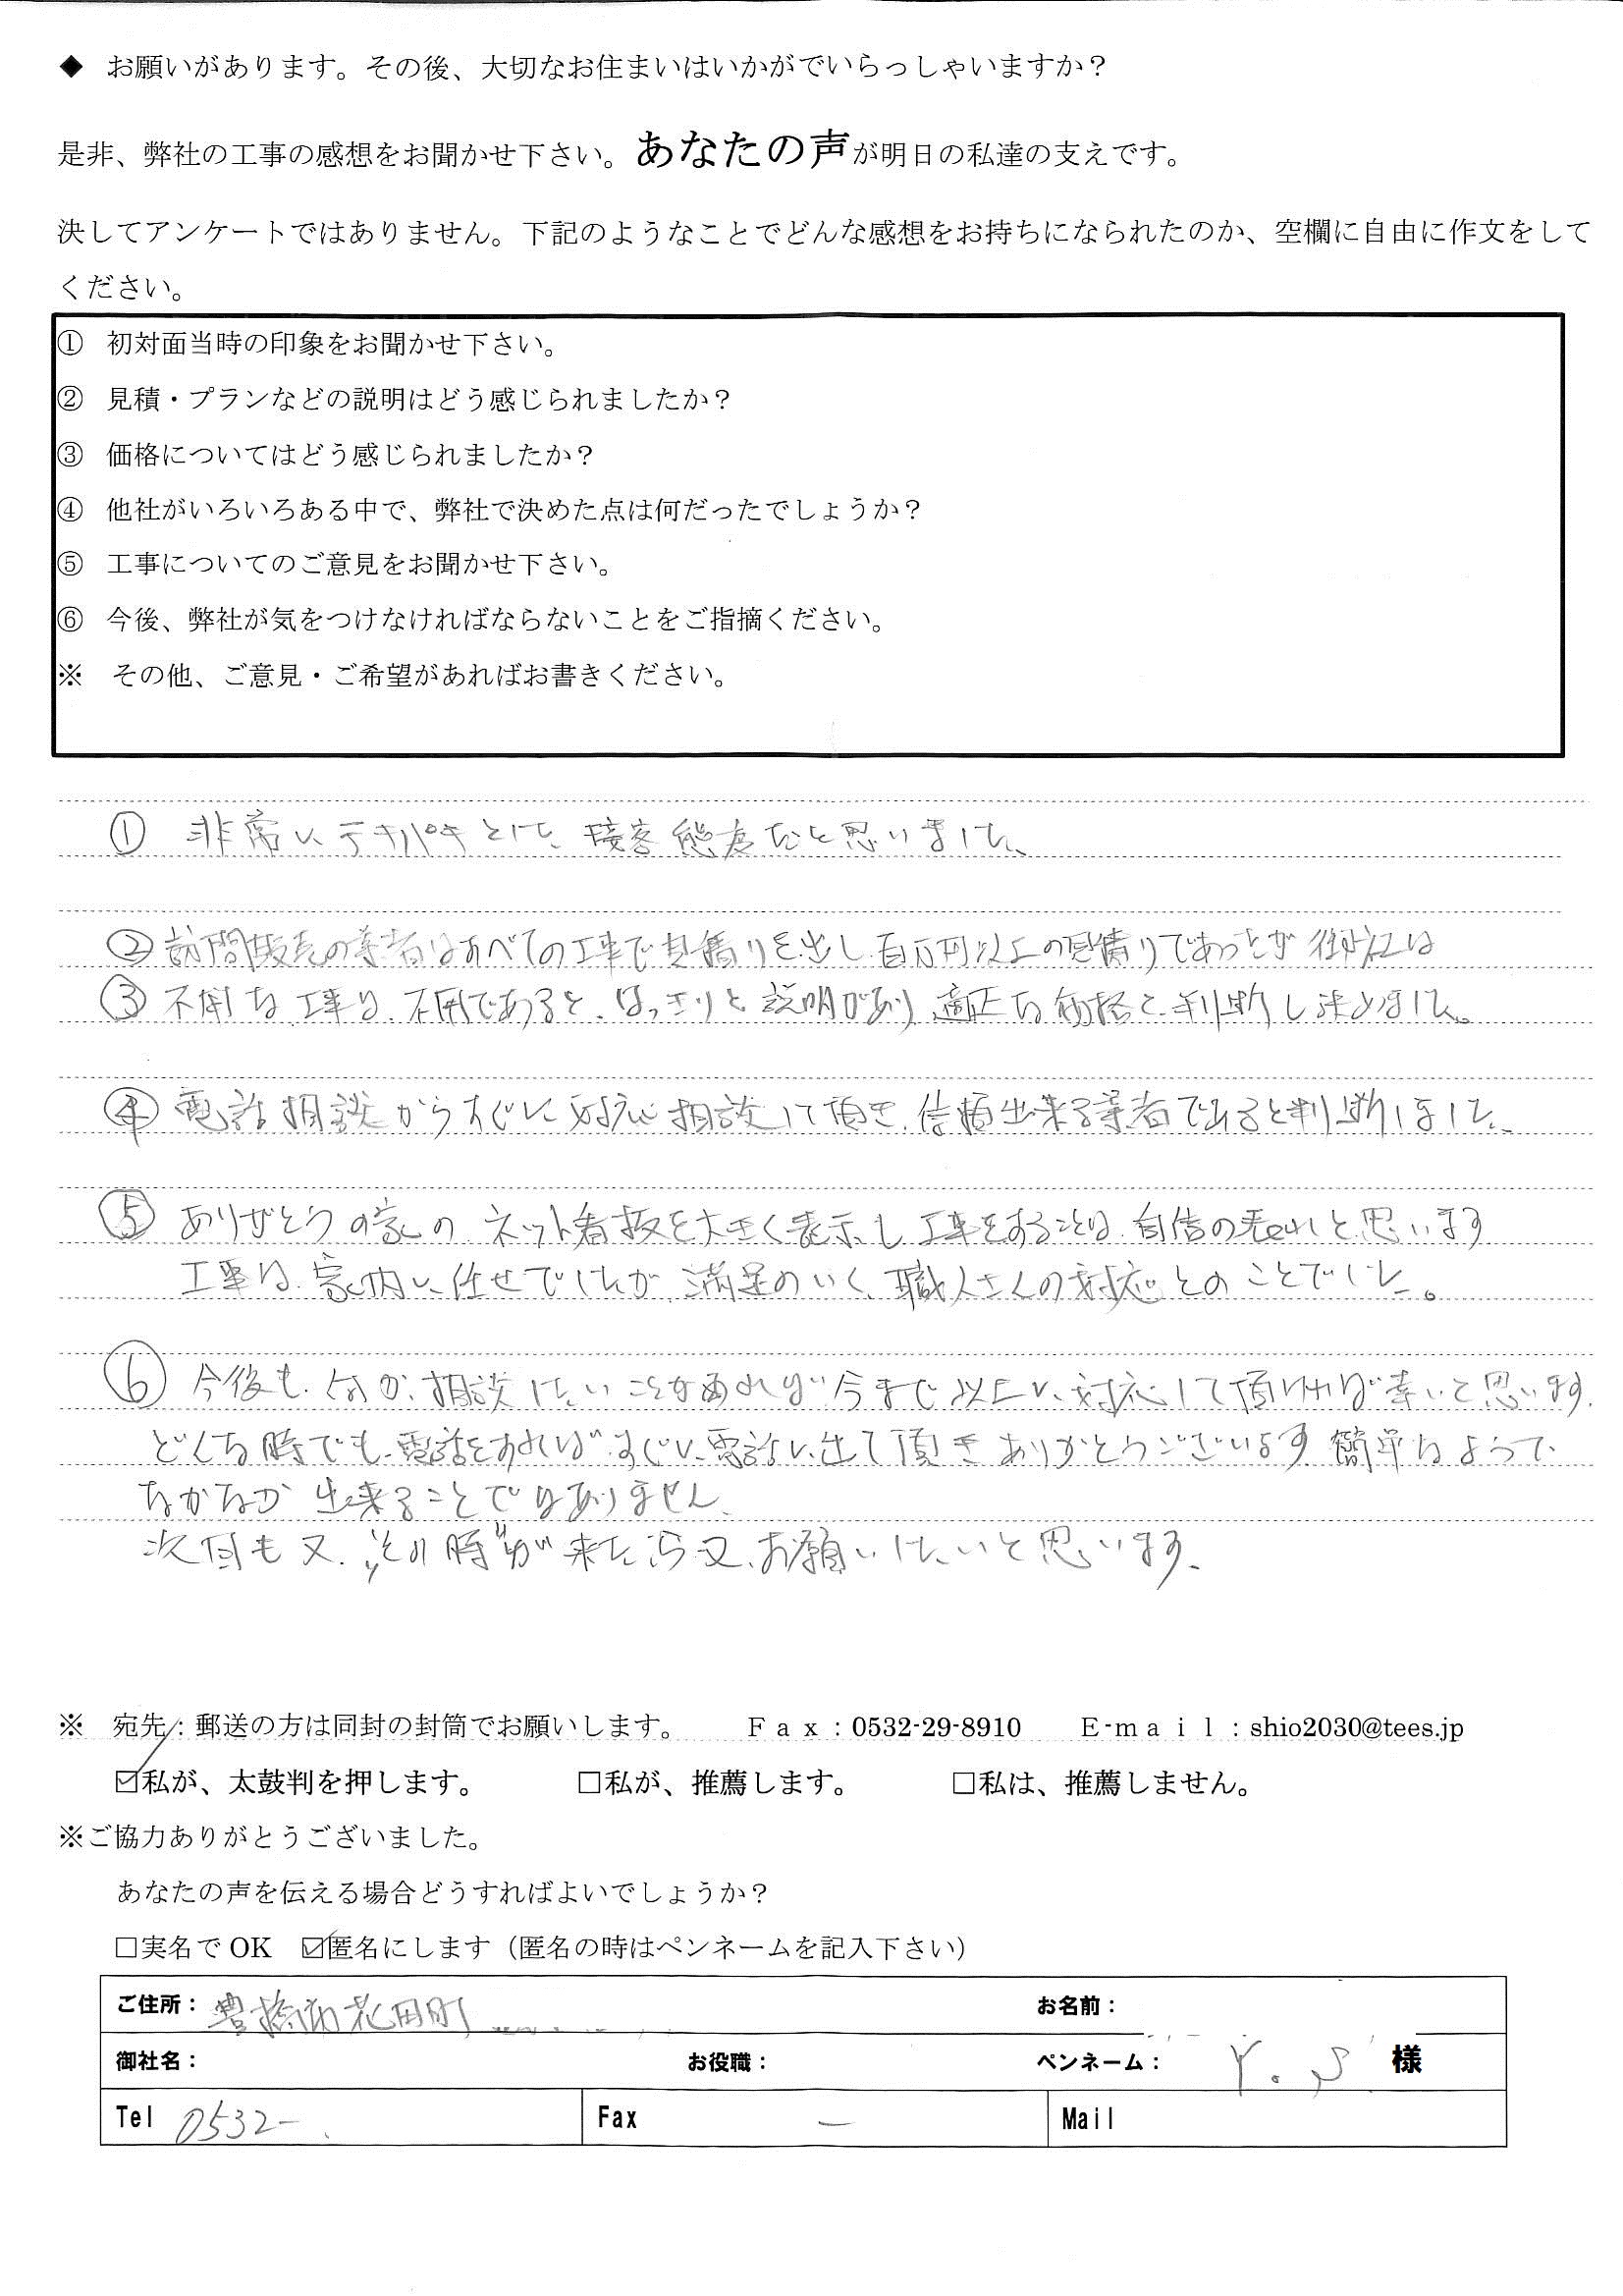 ◆ お願いがあります。その後、大切なお住まいはいかがでいらっしゃいますか?
是非、弊社の工事の感想をお聞かせ下さい。あなたの声が明日の私達の支えです。
決してアンケートではありません。下記のようなことでどんな感想をお持ちになられたのか、空欄に自由に作文をして
ください。
① 初対面当時の印象をお聞かせ下さい。
② 見積・プランなどの説明はどう感じられましたか?
③ 価格についてはどう感じられましたか?
④ 他社がいろいろある中で、弊社で決めた点は何だったでしょうか?
⑤ 工事についてのご意見をお聞かせ下さい。
⑥ 今後、弊社が気をつけなければならないことをご指摘ください。
※ その他、ご意見・ご希望があればお書きください。
① 非常にテキパキとした、接客態度だと思いました、
② 訪問販売の業者はすべての工事で見積りを出し百万円以上の見積りであったが御社は
③ 不用な工事は、不用であると、はっきりと説明があり、適正な価格と判断し決めました。
④ 電話相談からすぐに対応相談して頂き、信頼出来る業者であると判断しました、
⑤ ありがとうの家のネット看板を大きく表示し工事をすることは、自信の表れと思います
工事は、家内に任せでしたが、満足のいく、職人さんの対応とのことでした。
⑥ 今後も、なにか、相談したいことがあれば今まで以上に、対応して頂ければ幸いと思います、
どんな時でも、電話をすれば すぐに、電話に出て頂き ありがとうございます 簡単なようで、
なかなか 出来ることではありません、
次回も又、"その時"が来たら又、お願いしたいと思います、
※ 宛先:郵送の方は同封の封筒でお願いします。 Fax:0532-29-8910 E-mail:shio2030@tees.jp
☑私が、太鼓判を押します。 □私が、推薦します。 □私は、推薦しません。
※ご協力ありがとうございました。
あなたの声を伝える場合どうすればよいでしょうか?
□実名で OK ☑匿名にします(匿名の時はペンネームを記入下さい)
ご住所: 豊橋市花田町 お名前:
御社名: お役職: ペンネーム: Y.S 様
Tel 0532- Fax − Mail